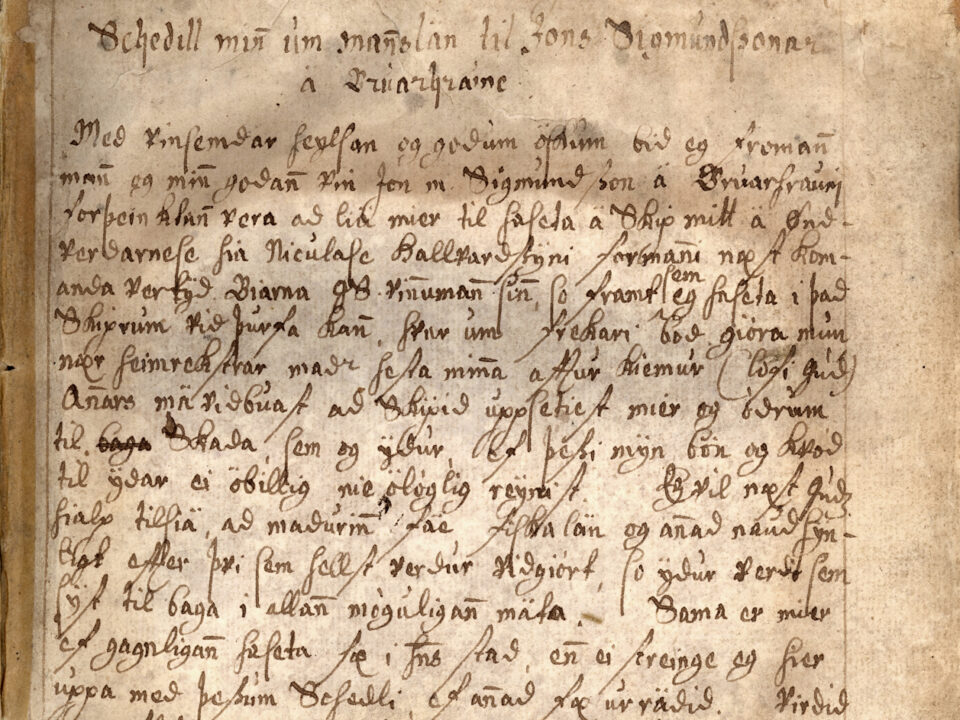 Schedill minn um mannslän til Jons Sigmundssonar
ä Bruarhraune
Med vinsemdar heylsan og godum öskum bid eg froman̄
man̄ og min̄ godan̄ vin Jon m Sigmundsson ä Bruarhrauni
forþeinktan̄ vera ad liä mier til häseta ä Skip mitt ä Ønd-
verdarnese hiä Niculase Hallvardssyni formanni næst kom-
anda vertijd Biarna GS vin̄umann sin̄, so framt sem eg häseta i það
Skiprum við þurfa kann, hvar um frekari boð giöra mun
nær heimrekstrar madr hesta minna aftur kiemur (lofi Gud)
An̄ars mä vidbuast ad Skipid uppsetiest mier og ödrum
til baga Skada, sem og ydur, ef þessi myn bön og kvöd
til ydar ei öbillig nie ölöglig reynist. Eg vil næst Guds
hialp tilsiä, ad madurin̄ fäe fiskalän og an̄ad naudsyn-
ligt efter þvi sem hellst verdur vidgiört, so ydur verdi sem
syst til baga i allan̄ möguligan̄ mäta. Sama er mier
ef gagnligan̄ häseta fæ i hn̄s stad, en̄ ei streinge eg hier
uppa med þessum Schedli, ef an̄ad fæ urrädid. Virdid